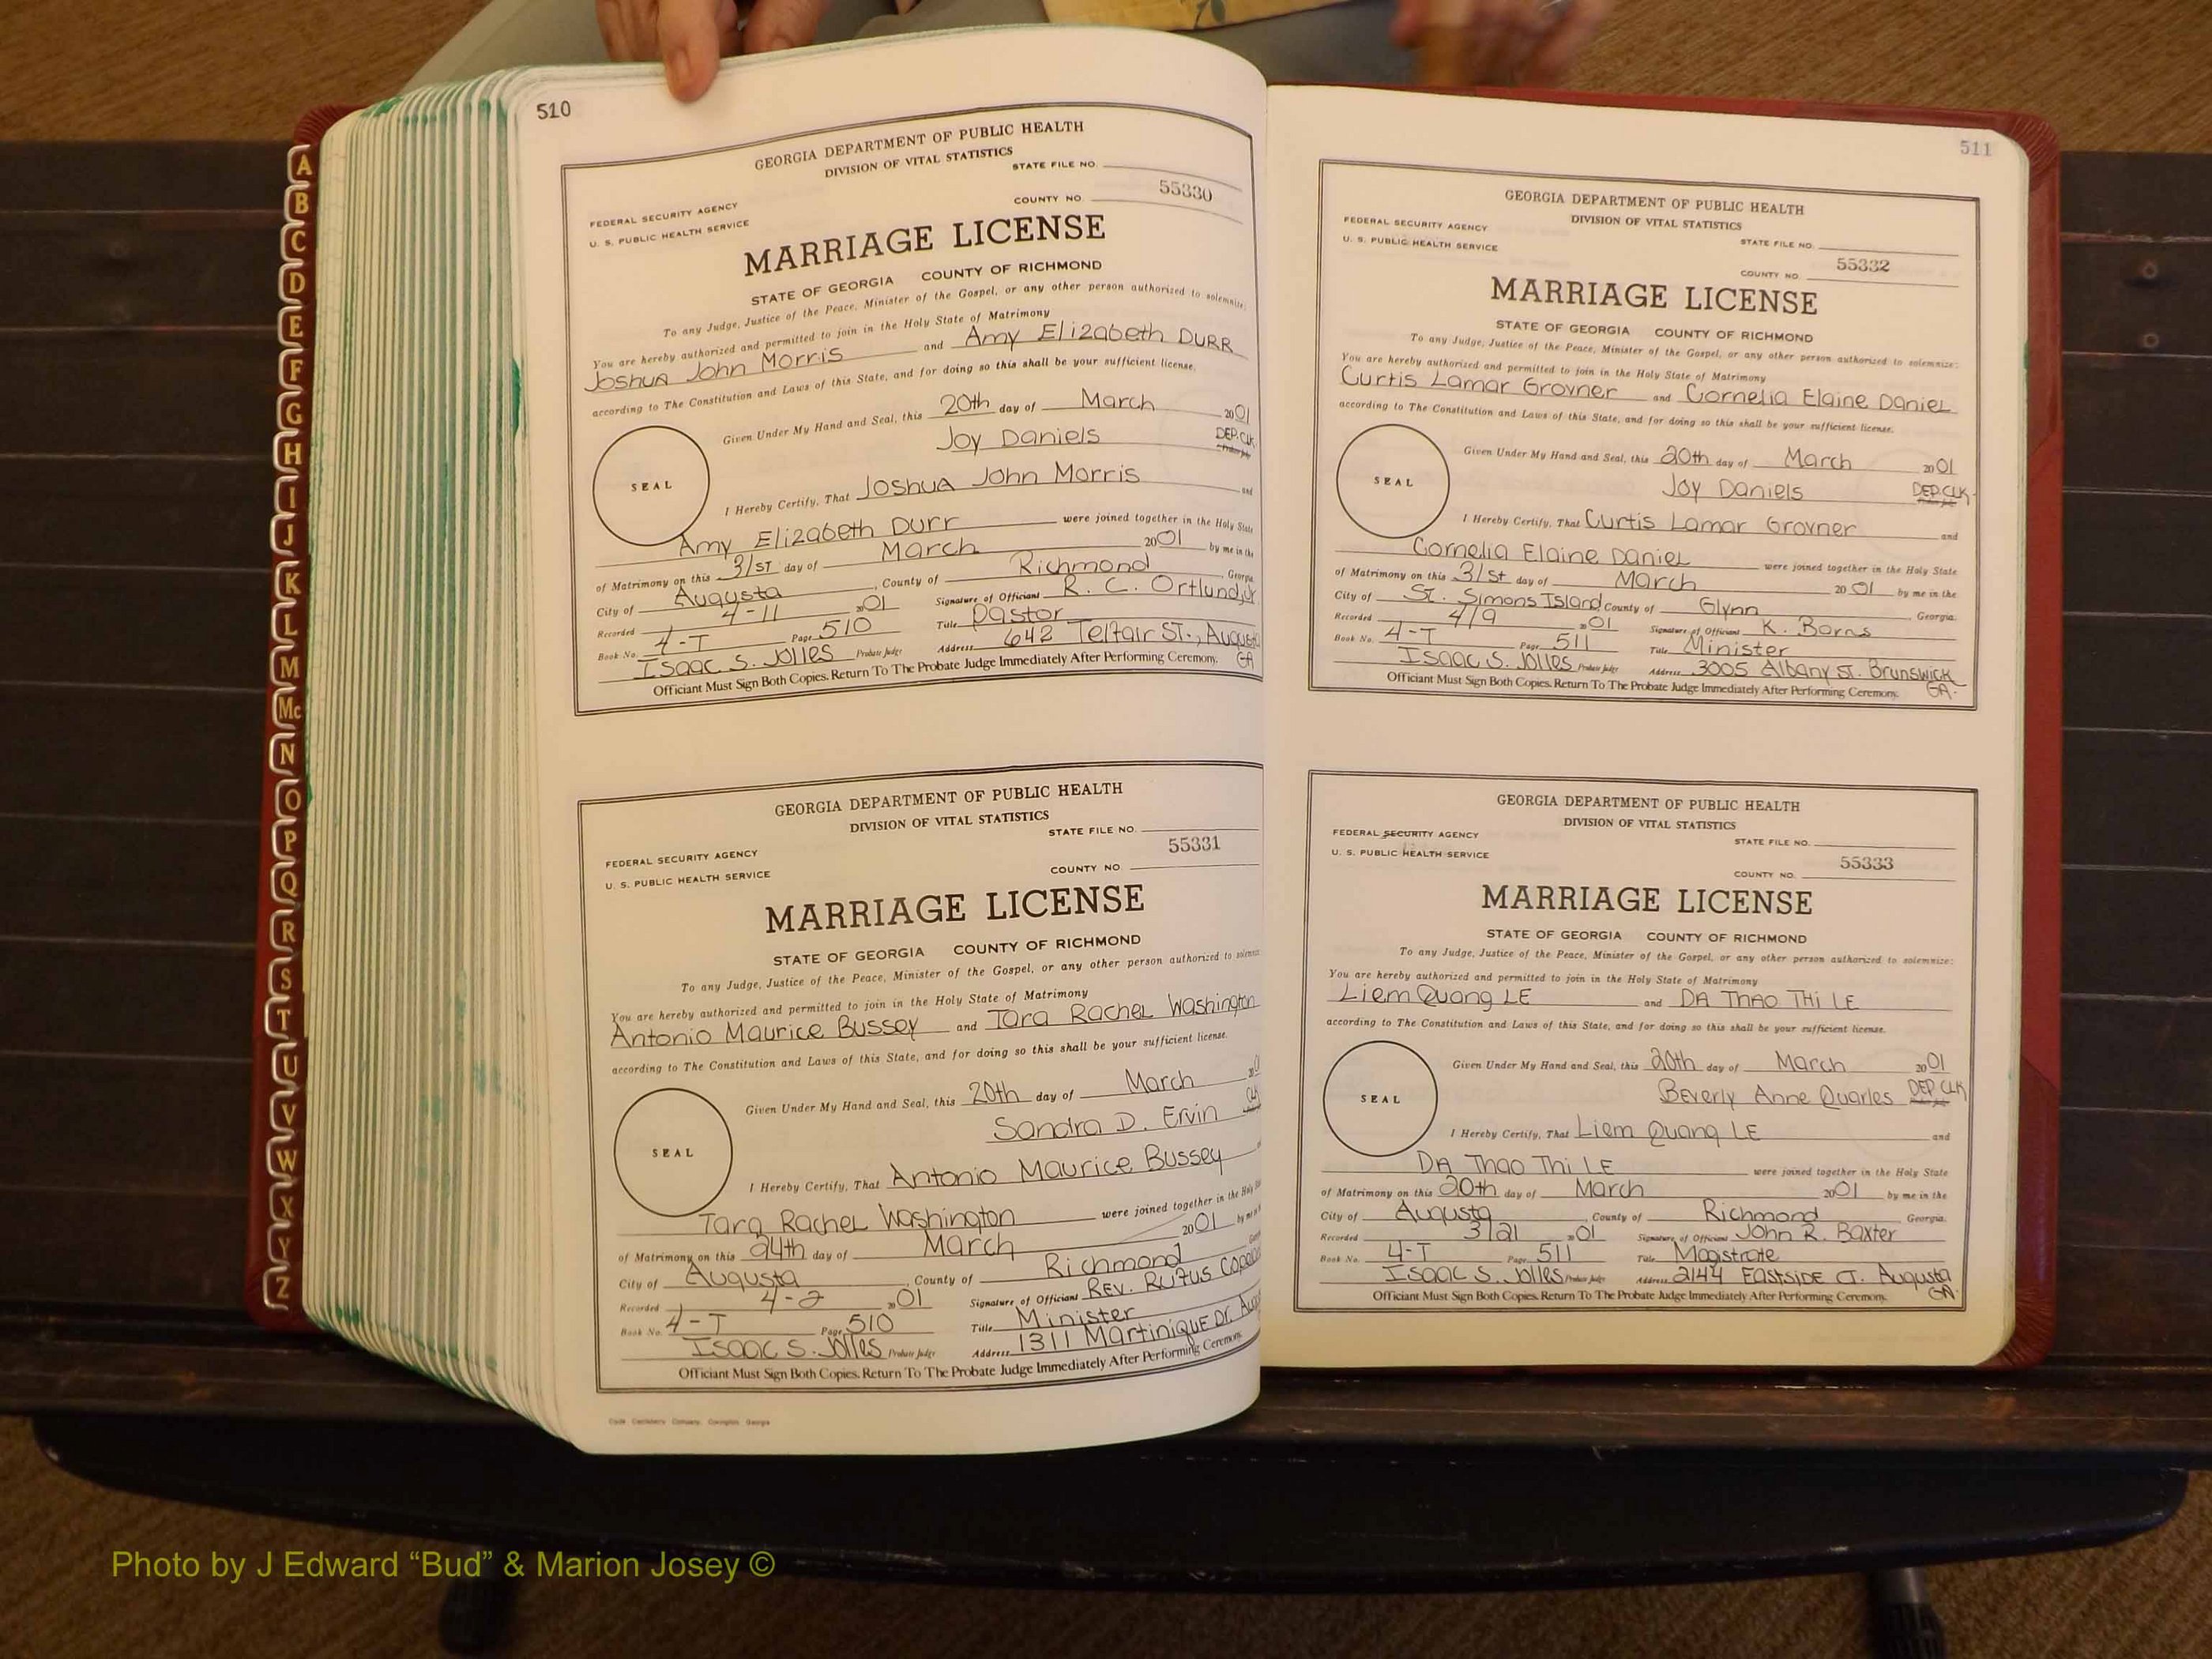 510
GEORGIA DEPARTMENT OF PUBLIC HEALTH
DIVISION OF VITAL STATISTICS
STATE FILE NO.
FEDERAL SECURITY AGENCY
U. S. PUBLIC HEALTH SERVICE
COUNTY NO. 55330
MARRIAGE LICENSE
STATE OF GEORGIA COUNTY OF RICHMOND
To any Judge, Justice of the Peace, Minister of the Gospel, or any other person authorized to solemnize:
You are hereby authorized and permitted to join in the Holy State of Matrimony
Joshua John Morris and Amy Elizabeth Durr
according to The Constitution and Laws of this State, and for doing so this shall be your sufficient license.
Given Under My Hand and Seal, this 20th day of March 2001
Joy Daniels DEP. CLK.
SEAL
I Hereby Certify, That Joshua John Morris and
Amy Elizabeth Durr were joined together in the Holy State
of Matrimony on this 31st day of March 2001 by me in the
City of Augusta, County of Richmond, Georgia.
Recorded 4-11 2001 Signature of Officiant R. C. Ortlund, Jr
Book No. 4-T Page 510 Title Pastor
Isaac S. Jolles Probate Judge Address 642 Telfair St., Augusta GA
Officiant Must Sign Both Copies. Return To The Probate Judge Immediately After Performing Ceremony.
GEORGIA DEPARTMENT OF PUBLIC HEALTH
DIVISION OF VITAL STATISTICS
STATE FILE NO.
FEDERAL SECURITY AGENCY
U. S. PUBLIC HEALTH SERVICE
COUNTY NO. 55331
MARRIAGE LICENSE
STATE OF GEORGIA COUNTY OF RICHMOND
To any Judge, Justice of the Peace, Minister of the Gospel, or any other person authorized to solemnize
You are hereby authorized and permitted to join in the Holy State of Matrimony
Antonio Maurice Bussey and Tara Rachel Washington
according to The Constitution and Laws of this State, and for doing so this shall be your sufficient license.
Given Under My Hand and Seal, this 20th day of March 2001
Sandra D. Ervin Clk
SEAL
I Hereby Certify, That Antonio Maurice Bussey
Tara Rachel Washington were joined together in the Holy
of Matrimony on this 24th day of March 2001 by me in
City of Augusta, County of Richmond
Recorded 4-2 2001 Signature of Officiant Rev. Rufus
Book No. 4-T Page 510 Title Minister
Isaac S. Jolles Probate Judge Address 1311 Martinique Dr.
Officiant Must Sign Both Copies. Return To The Probate Judge Immediately After Performing Ceremony.
511
GEORGIA DEPARTMENT OF PUBLIC HEALTH
DIVISION OF VITAL STATISTICS
STATE FILE NO.
FEDERAL SECURITY AGENCY
U. S. PUBLIC HEALTH SERVICE
COUNTY NO. 55332
MARRIAGE LICENSE
STATE OF GEORGIA COUNTY OF RICHMOND
To any Judge, Justice of the Peace, Minister of the Gospel, or any other person authorized to solemnize:
You are hereby authorized and permitted to join in the Holy State of Matrimony
Curtis Lamar Grovner and Cornelia Elaine Daniel
according to The Constitution and Laws of this State, and for doing so this shall be your sufficient license.
Given Under My Hand and Seal, this 20th day of March 2001
Joy Daniels DEP. CLK.
SEAL
I Hereby Certify, That Curtis Lamar Grovner and
Cornelia Elaine Daniel were joined together in the Holy State
of Matrimony on this 31st day of March 2001 by me in the
City of St. Simons Island, County of Glynn, Georgia.
Recorded 4/9 2001 Signature of Officiant K. Barns
Book No. 4-T Page 511 Title Minister
Isaac S. Jolles Probate Judge Address 3005 Albany St. Brunswick GA.
Officiant Must Sign Both Copies. Return To The Probate Judge Immediately After Performing Ceremony.
GEORGIA DEPARTMENT OF PUBLIC HEALTH
DIVISION OF VITAL STATISTICS
STATE FILE NO.
FEDERAL SECURITY AGENCY
U. S. PUBLIC HEALTH SERVICE
COUNTY NO. 55333
MARRIAGE LICENSE
STATE OF GEORGIA COUNTY OF RICHMOND
To any Judge, Justice of the Peace, Minister of the Gospel, or any other person authorized to solemnize:
You are hereby authorized and permitted to join in the Holy State of Matrimony
Liem Quang Le and Da Thao Thi Le
according to The Constitution and Laws of this State, and for doing so this shall be your sufficient license.
Given Under My Hand and Seal, this 20th day of March 2001
Beverly Anne Quarles DEP. CLK
SEAL
I Hereby Certify, That Liem Quang Le and
Da Thao Thi Le were joined together in the Holy State
of Matrimony on this 20th day of March 2001 by me in the
City of Augusta, County of Richmond Georgia.
Recorded 3/21 2001 Signature of Officiant John R. Baxter
Book No. 4-T Page 511 Title Magistrate
Isaac S. Jolles Probate Judge Address 2144 Eastside Ct. Augusta GA.
Officiant Must Sign Both Copies. Return To The Probate Judge Immediately After Performing Ceremony.
A
B
C
D
E
F
G
H
I
J
K
L
M
Mc
N
O
P
Q
R
S
T
U
V
W
X
Y
Z
Photo by J Edward “Bud” & Marion Josey ©